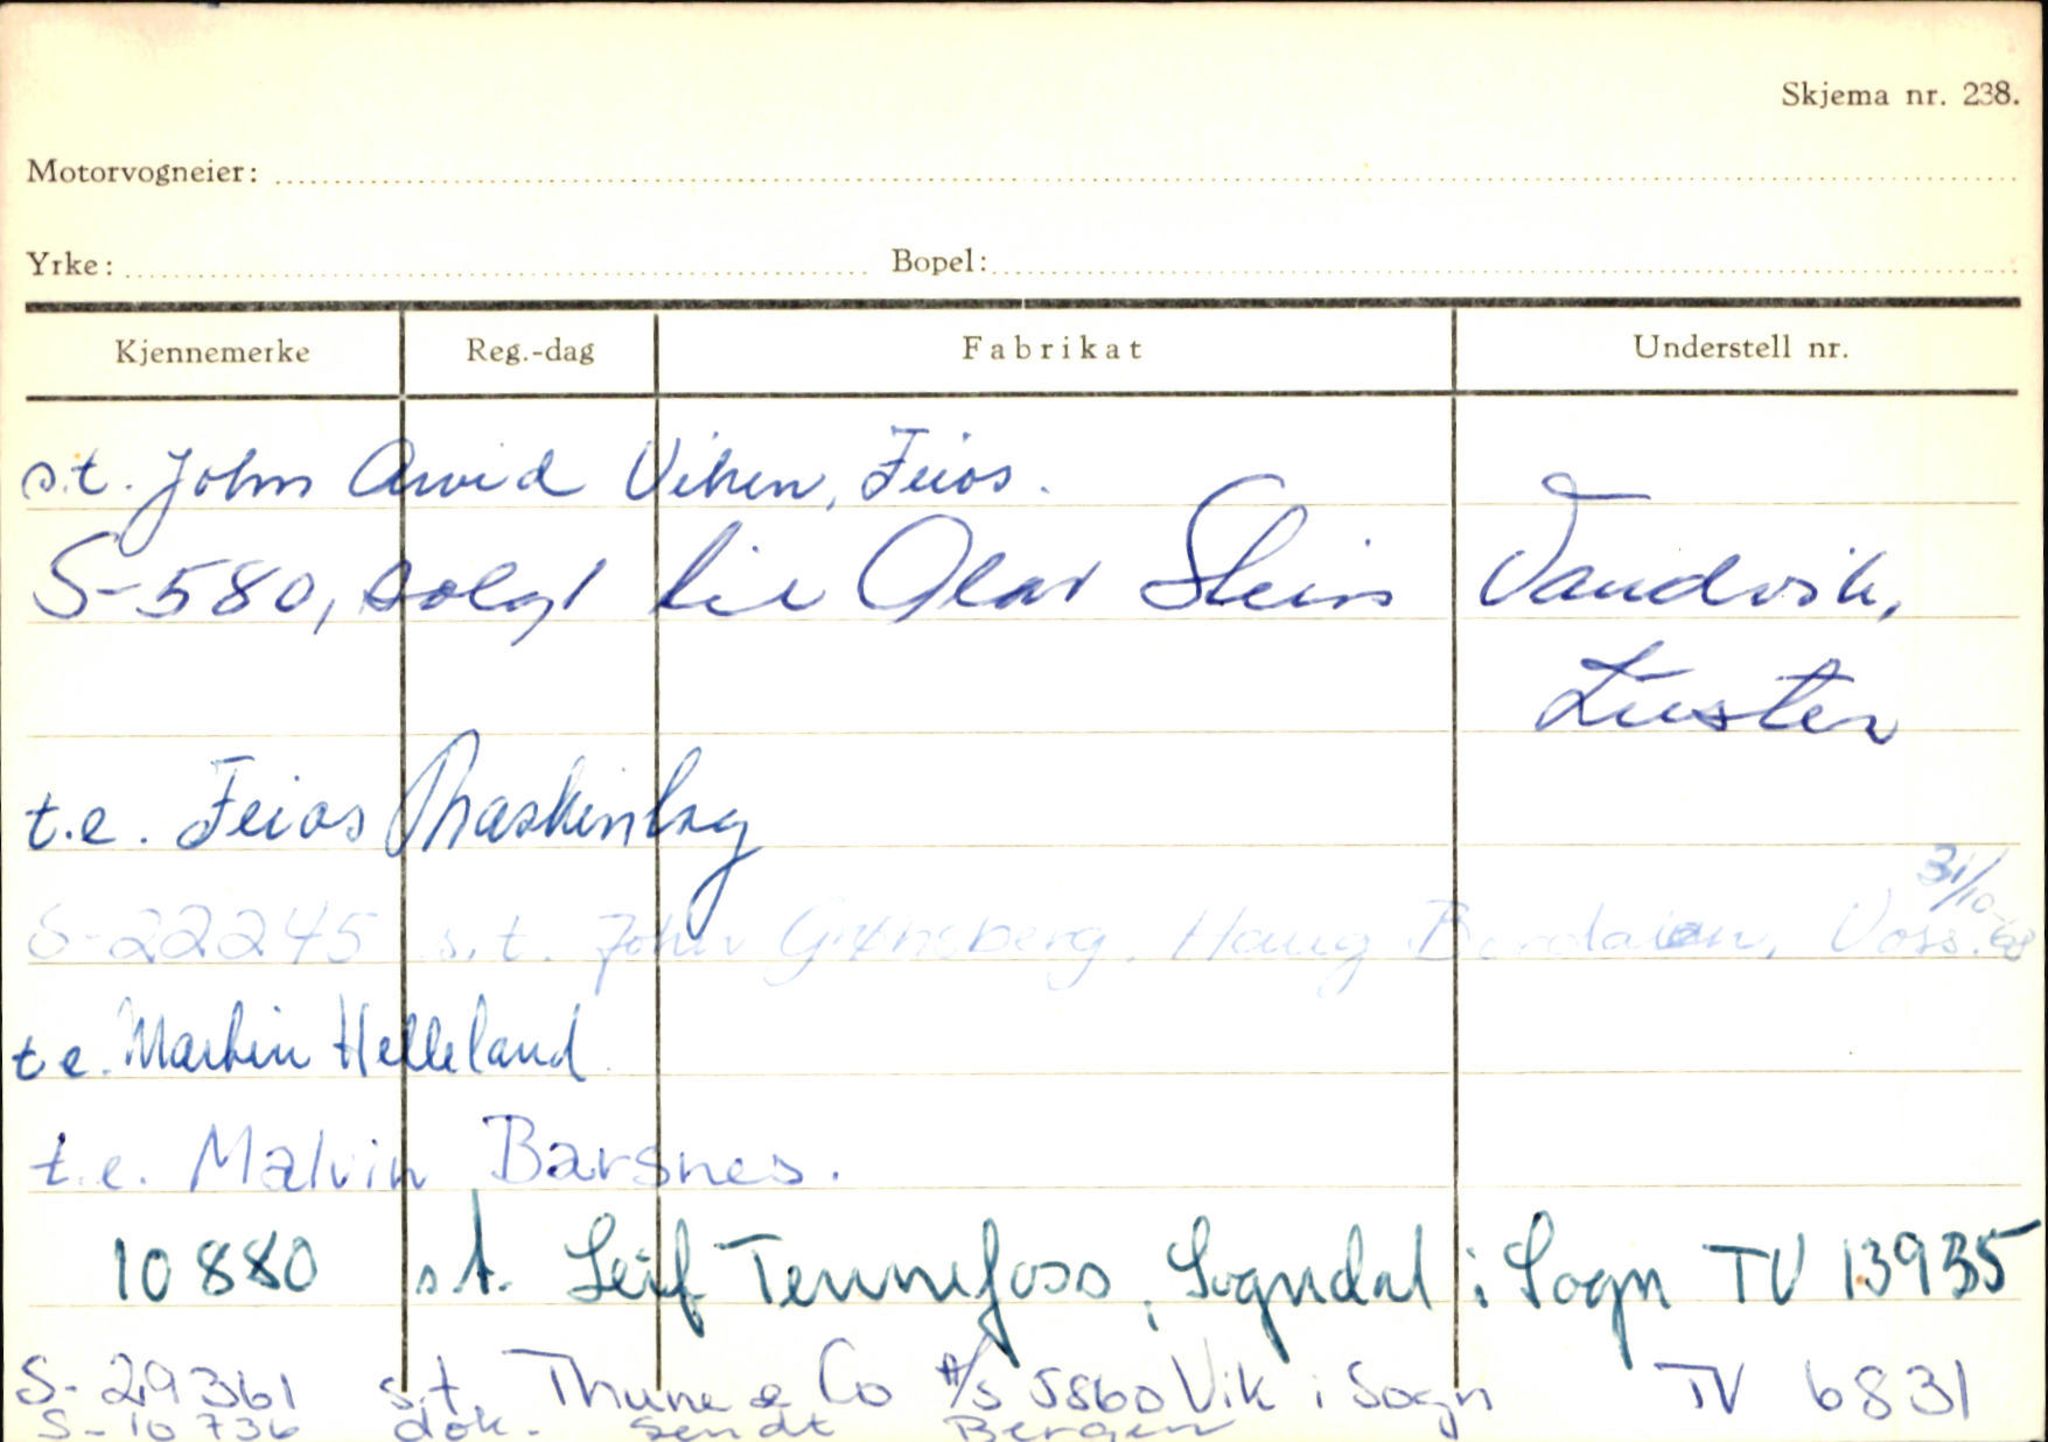 Skjema nr. 238.
Motorvogneier:
Yrke: Bopel:
Kjennemerke Reg.-dag Fabrikat Understell nr.
s.t. John Arvid Viken, Feios.
S-580, solgt til Olav Stein Vandvik,
Luster
t.e. Feios Maskinlag
31/10-68
S-22245 s.t. John Grønsberg, Haug Bordalen, Voss.
t.e. Martin Helleland
t.e. Malvin Barsnes.
10880 s.t. Leif Tennefoss, Sogndal i Sogn TV 13935
S-29361 s.t Thune & Co A/S 5860 Vik i Sogn TV 6831
S-10736 dok. sendt Bergen